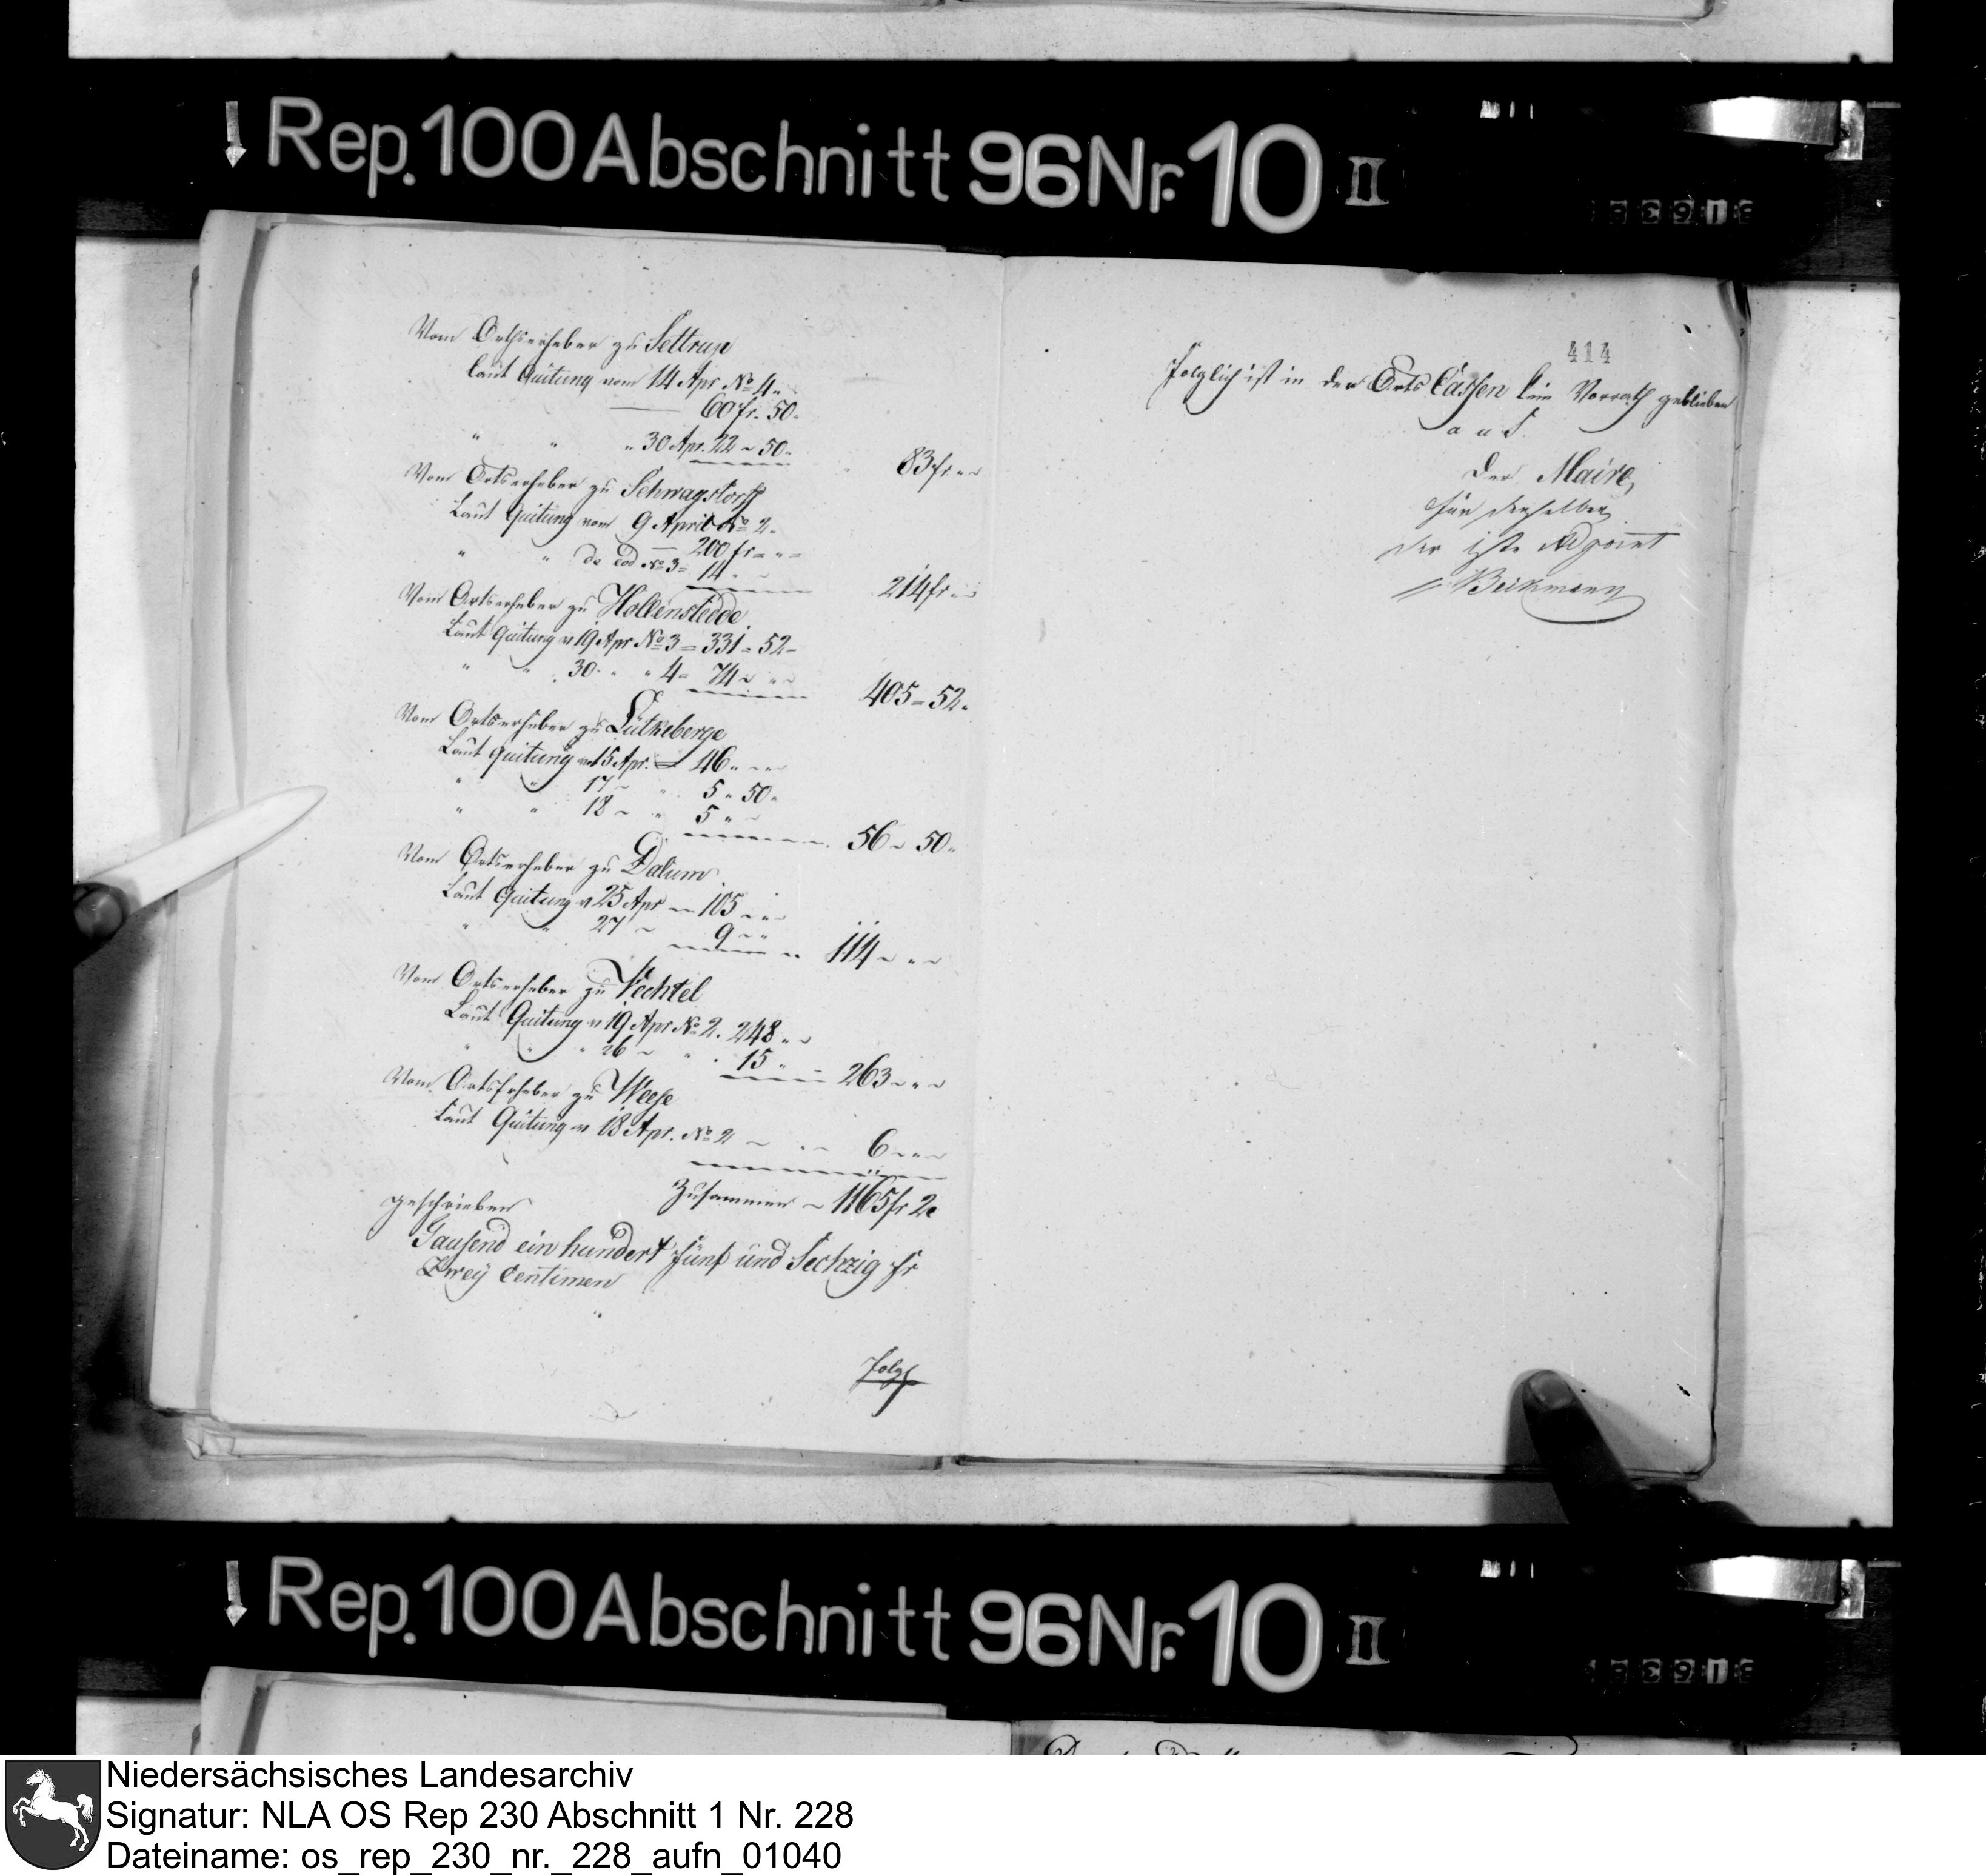 Rep. 100 Abschnitt 96 Nr. 10 II
Vom Ortserheber zu Settrup
laut Quitung vom 14 Apr No 4 „
60 fr. 50 „
„ „ „ 30 Apr. 22 ~ 50 „
83 fr „ ~
Vom Ortserheber zu Schwagstorff
Laut Quitung vom 9 April No 2 „
200 fr = „ =
„ „ do eod No 3 = 14 „ ~
214 fr „ ~
Vom Ortserheber zu Hollenstedde
Laut Quitung v 19 Apr No 3 = 331 = 52 =
„ „ „ 30 „ „ 4 = 74 ~ „ ~
405 = 52 „
Vom Ortserheber zu Lütkeberge
Laut Quitung v 15 Apr. = 46 „ ~
„ „ 17 ~ „ 5 „ 50 „
„ „ 18 ~ „ 5 „ ~
56 ~ 50 „
Vom Ortserheber zu Dalum
Laut Quitung v 25 Apr ~ 105 ~ „ ~
„ „ 27 ~ 9 ~ „
114 ~ „ ~
Vom Ortserheber zu Vechtel
Laut Quitung v 19 Apr No 2 . 248 „ ~
„ „ „ 26 ~ „ . 15 „
263 ~ „ ~
Vom Ortserheber zu Weese
Laut Quitung v 18 Apr. No 2 ~ „ ~ 6 ~ „ ~
Zusammen ~ 1165 fr 2 c
geschrieben
Tausend ein hundert fünf und Sechzig fr
Zwey Centimen
Folg
414
Folglich ist in den Orts Cassen kein Vorrath geblieben
a u s.
Der Maire,
für denselben
der 1ste Adjoint
Beckmann
Rep. 100 Abschnitt 96 Nr. 10 II
Niedersächsisches Landesarchiv
Signatur: NLA OS Rep 230 Abschnitt 1 Nr. 228
Dateiname: os_rep_230_nr._228_aufn_01040